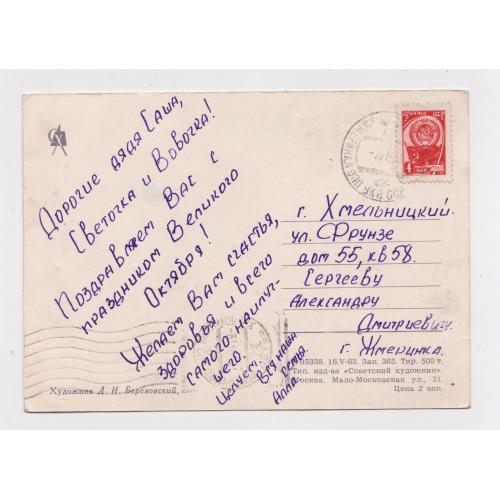 Дорогие дядя Саша,
Светочка и Вовочка!
Поздравляем Вас с
праздником Великого
Октября!
Желаем Вам счастья,
здоровья и всего
самого наилуч-
шего.
Целуем.
Вся наша
семья
Алла
4
г. Хмельницкий
ул. Фрунзе
дом 55, кв 58.
Сергееву
Александру
Дмитриевичу.
г. Жмеринка.
05338. 16.V-63. Зак. 365. Тир. 500 т.
Тип. изд-ва «Советский художник».
Москва, Мало-Московская ул., 21.
Цена 2 коп.
Художник Л. И. Березовский,